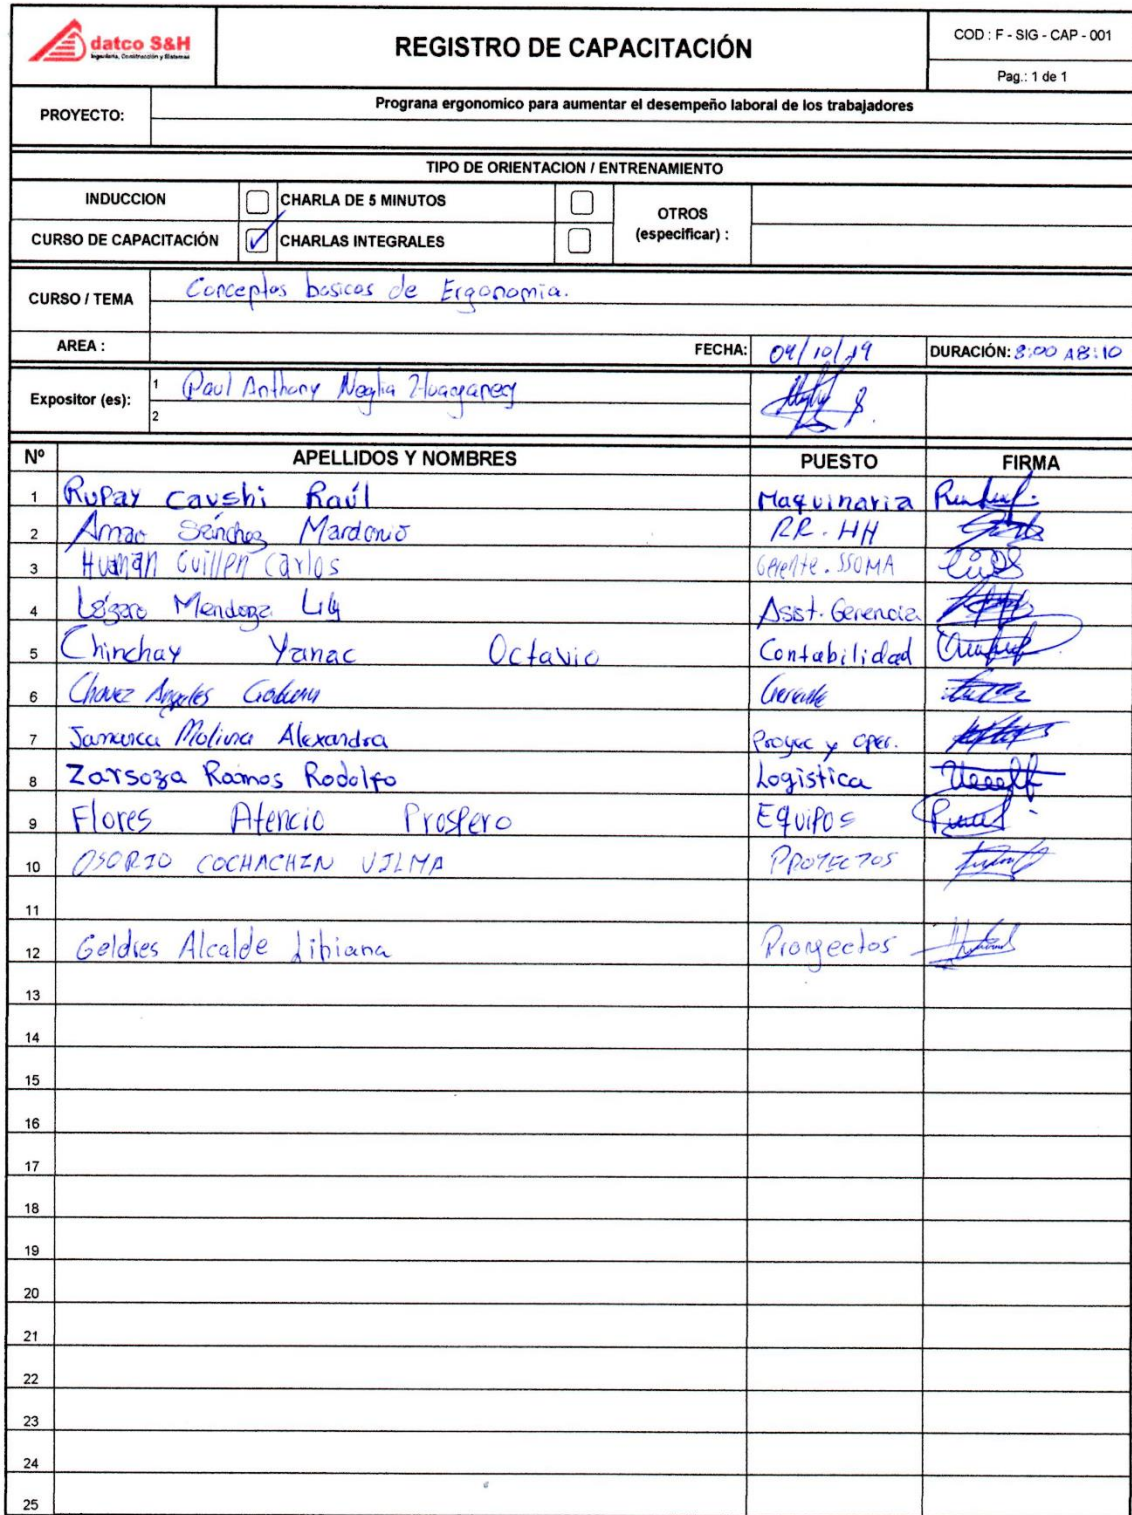 datco S&H
Ingeniería, Construcción y Sistemas
REGISTRO DE CAPACITACIÓN
COD : F - SIG - CAP - 001
Pag.: 1 de 1
PROYECTO:
Programa ergonomico para aumentar el desempeño laboral de los trabajadores
TIPO DE ORIENTACION / ENTRENAMIENTO
INDUCCION
CHARLA DE 5 MINUTOS
OTROS
(especificar) :
CURSO DE CAPACITACIÓN
CHARLAS INTEGRALES
CURSO / TEMA
Conceptos basicos de Ergonomia.
AREA :
FECHA: 04/10/19
DURACIÓN: 8:00 A 8:10
Expositor (es):
1 Paul Anthony Neglia
2
Nº APELLIDOS Y NOMBRES PUESTO FIRMA
1 Rupay Caushi Raúl Maquinaria
2 Amao Sánchez Mardonio RR.HH
3 Huamán Guillen Carlos Gerente. SSOMA
4 Lázaro Mendoza Lily Asist. Gerencia
5 Chinchay Yanac Octavio Contabilidad
6 Chavez Angeles Gerente
7 Molina Alexandra Proyec y oper.
8 Zarsoza Ramos Rodolfo Logistica
9 Flores Atencio Prospero Equipos
10 OSORIO COCHACHIN VILMA PROYECTOS
11
12 Geldres Alcalde Libiana Pronyectos
13
14
15
16
17
18
19
20
21
22
23
24
25